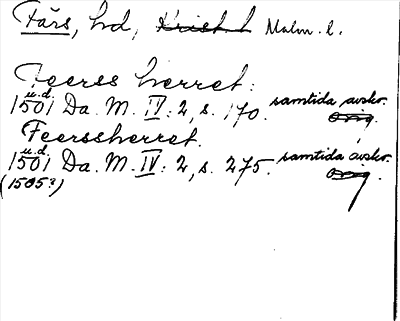 Färs, hd, Krist. l Malm. l.
Feerss herret:
u.d.
1501 Da. M. IV: 2, s. 170. samtida avskr.
orig.
Feerssherret.
u.d.
1501 Da. M. IV: 2, s. 275. samtida avskr.
(1505?) orig.